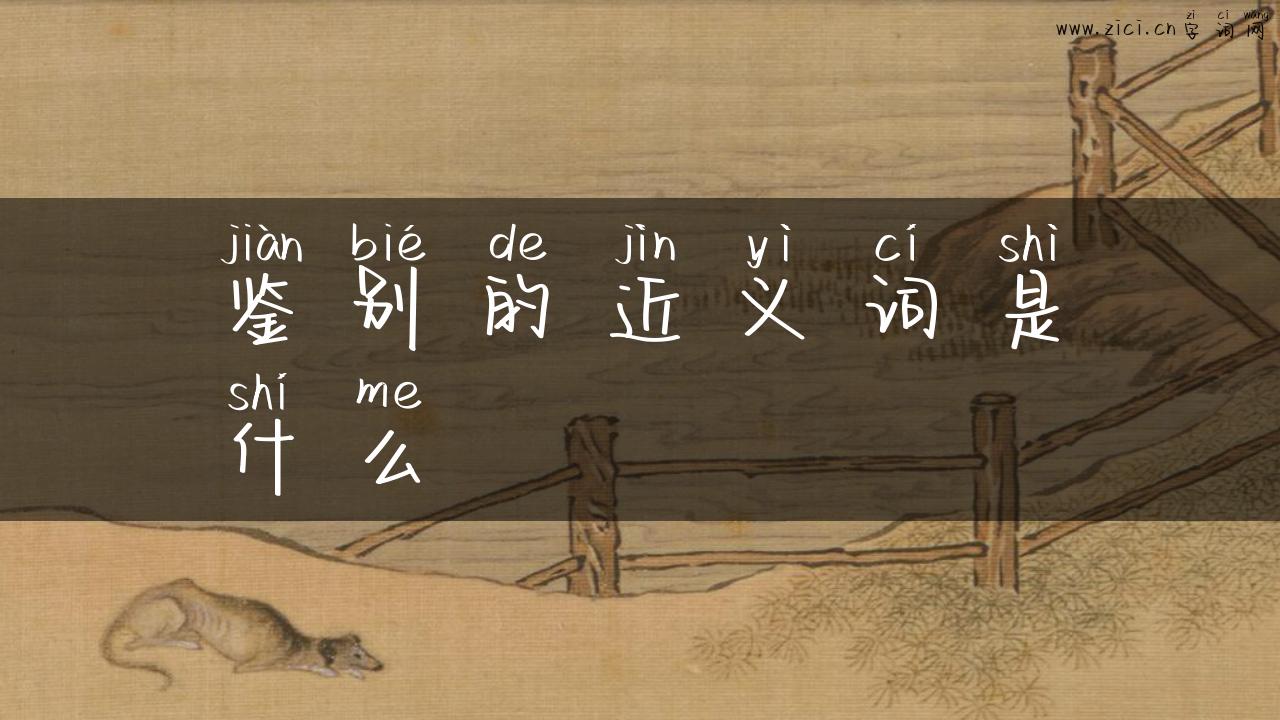 zì cí wǎng
www.zici.cn 字词网
jiàn bié de jìn yì cí shì
鉴别的近义词是
shí me
什么